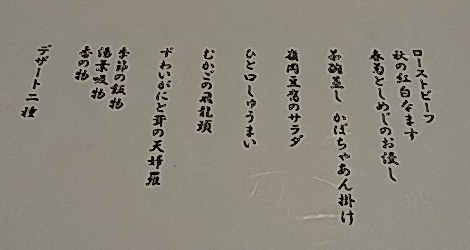 ローストビーフ
秋の紅白なます
春菊としめじのお浸し
茶碗蒸し かぼちゃあん掛け
豆腐のサラダ
ひと口しゅうまい
むかごの飛龍頭
ずわいがにと茸の天婦羅
季節の飯物
湯葉吸物
香の物
デザート二種